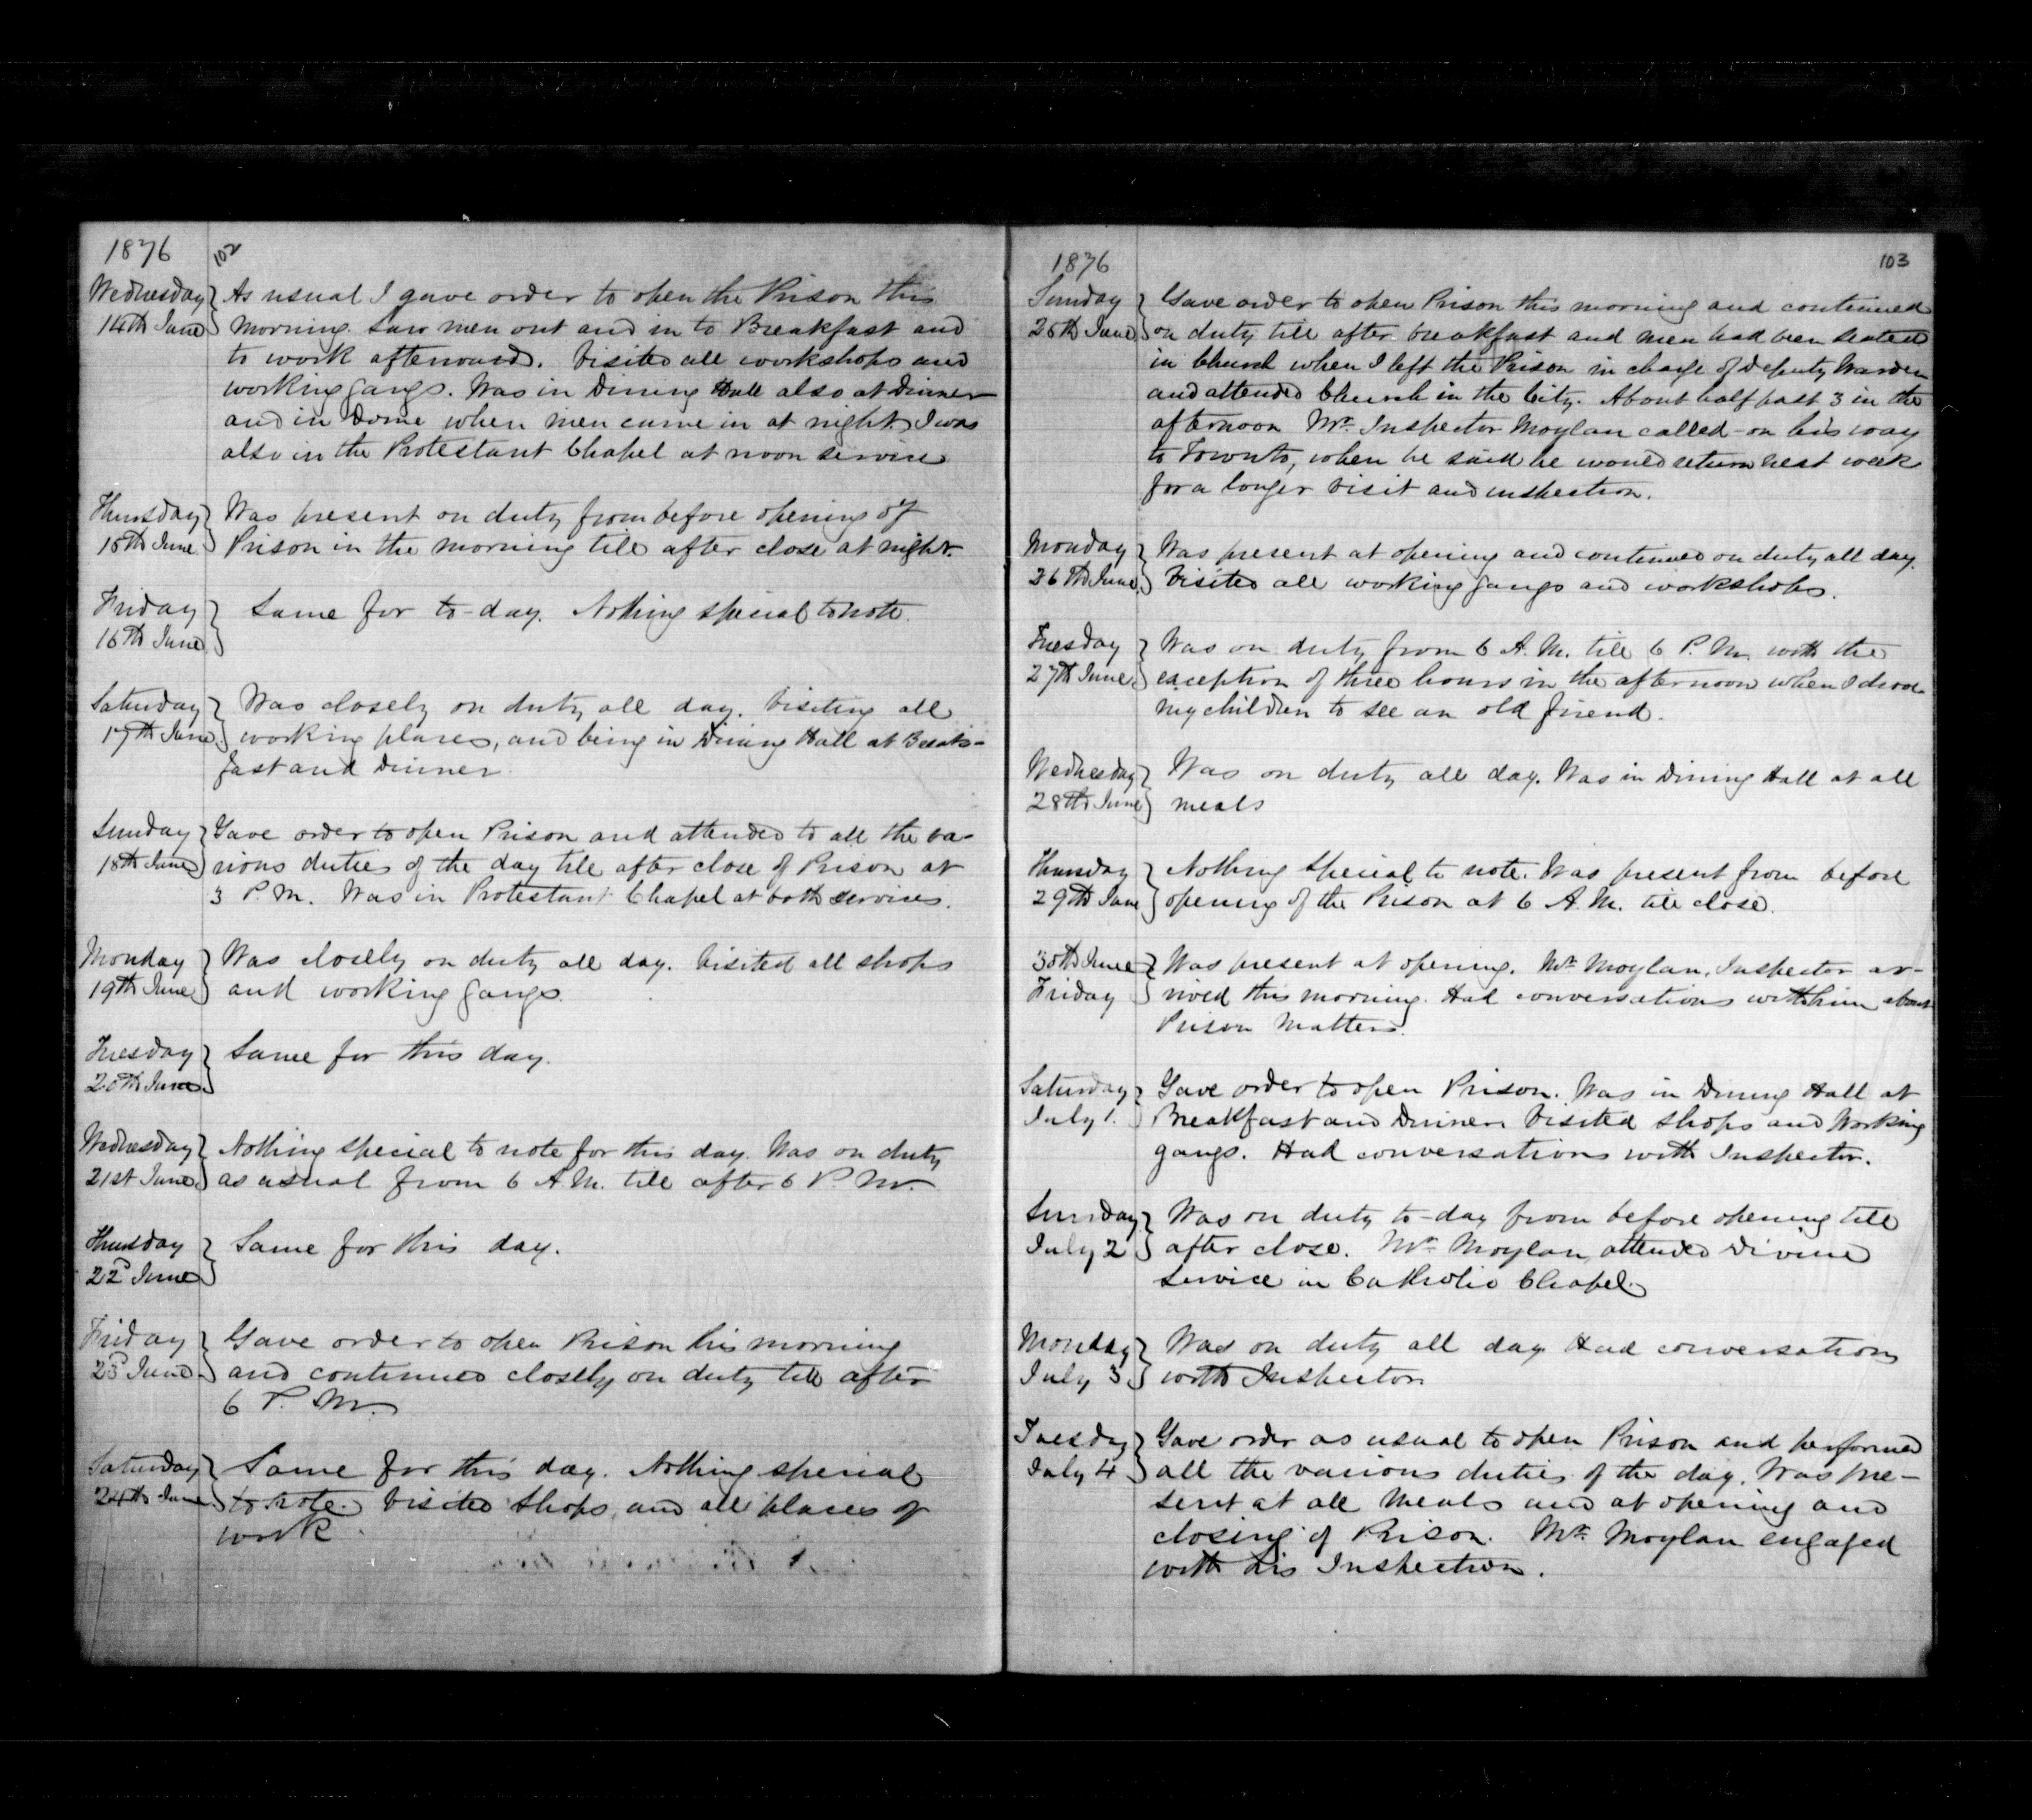 1876 102
Wednesday As usual I gave order to open the Prison this
14th June morning. Saw men out and in to Breakfast and
to work afterward. Visited all workshops and
working gangs. Was in Dining Hall also at Dinner
and in Dome when men came in at night. I was
also in the Protestant Chapel at noon service
Thursday Was present on duty from before opening of
15th June Prison in the morning till after close at night.
Friday Same for to-day. Nothing special to note.
16th June
Saturday Was closely on duty all day. Visiting all
17th June working places, and being in Dining Hall at Break-
fast and Dinner.
Sunday Gave order to open Prison and attended to all the va-
18th June rious duties of the day till after close of Prison at
3 P.M. Was in Protestant Chapel at both services.
Monday Was closely on duty all day. Visited all shops
19th June and working gangs.
Tuesday Same for this day.
20th June
Wednesday Nothing special to note for this day. Was on duty
21st June as usual from 6 A.M. till after 6 P.M.
Thursday Same for this day.
22d June
Friday Gave order to open Prison his morning
23d June and continued closely on duty till after
6 P.M.
Saturday Same for this day. Nothing special
24th June to note. Visited shops, and all places of
work.
1876 103
Sunday Gave order to open Prison this morning and continued
25th June on duty till after breakfast and men had been seated
in Church when I left the Prison in charge of Deputy Warden
and attended Church in the City. About half past 3 in the
afternoon Mr. Inspector Moylan called on his way
to Toronto, when he said he would return next week
for a longer visit and inspection.
Monday Was present at opening and continued on duty all day.
26th June Visited all working gangs and workshops.
Tuesday Was on duty from 6 A.M. till 6 P.M. with the
27th June exception of three hours in the afternoon when I drove
my children to see an old friend.
Wednesday Was on duty all day. Was in Dining Hall at all
28th June meals
Thursday Nothing special to note. Was present from before
29th June opening of the Prison at 6 A.M. till close.
30th June Was present at opening. Mr. Moylan, Inspector ar-
Friday rived this morning. Had conversations with him about
Prison Matters.
Saturday Gave order to open Prison. Was in Dining Hall at
July 1. Breakfast and Dinner. Visited shops and Working
gangs. Had conversations with Inspector.
Sunday Was on duty to-day from before opening till
July 2 after close. Mr. Moylan attended Divine
Service in Catholic Chapel.
Monday Was on duty all day Had conversation
July 3 with Inspector.
Tuesday Gave order as usual to open Prison and performed
July 4 all the various duties of the day. Was pre-
sent at all Meals and at opening and
closing of Prison. Mr. Moylan engaged
with his Inspection.